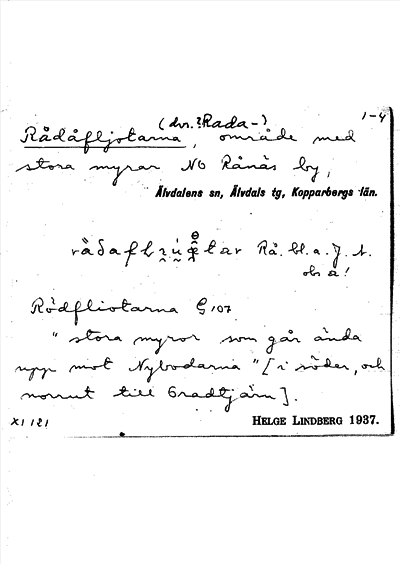 (dvs. ?Rada-) 1-4
Rådåfljotarna, område med
stora myrar NO Rånäs by,
Älvdalens sn, Älvdals tg, Kopparbergs län.
Rå. bl. a. J. A.
obs a!
Rödfliotarna G 107
" stora myror som går ända
upp mot Nybodarna " [i söder, och
norrut till Gradtjärn].
XI 121 HELGE LINDBERG 1937.